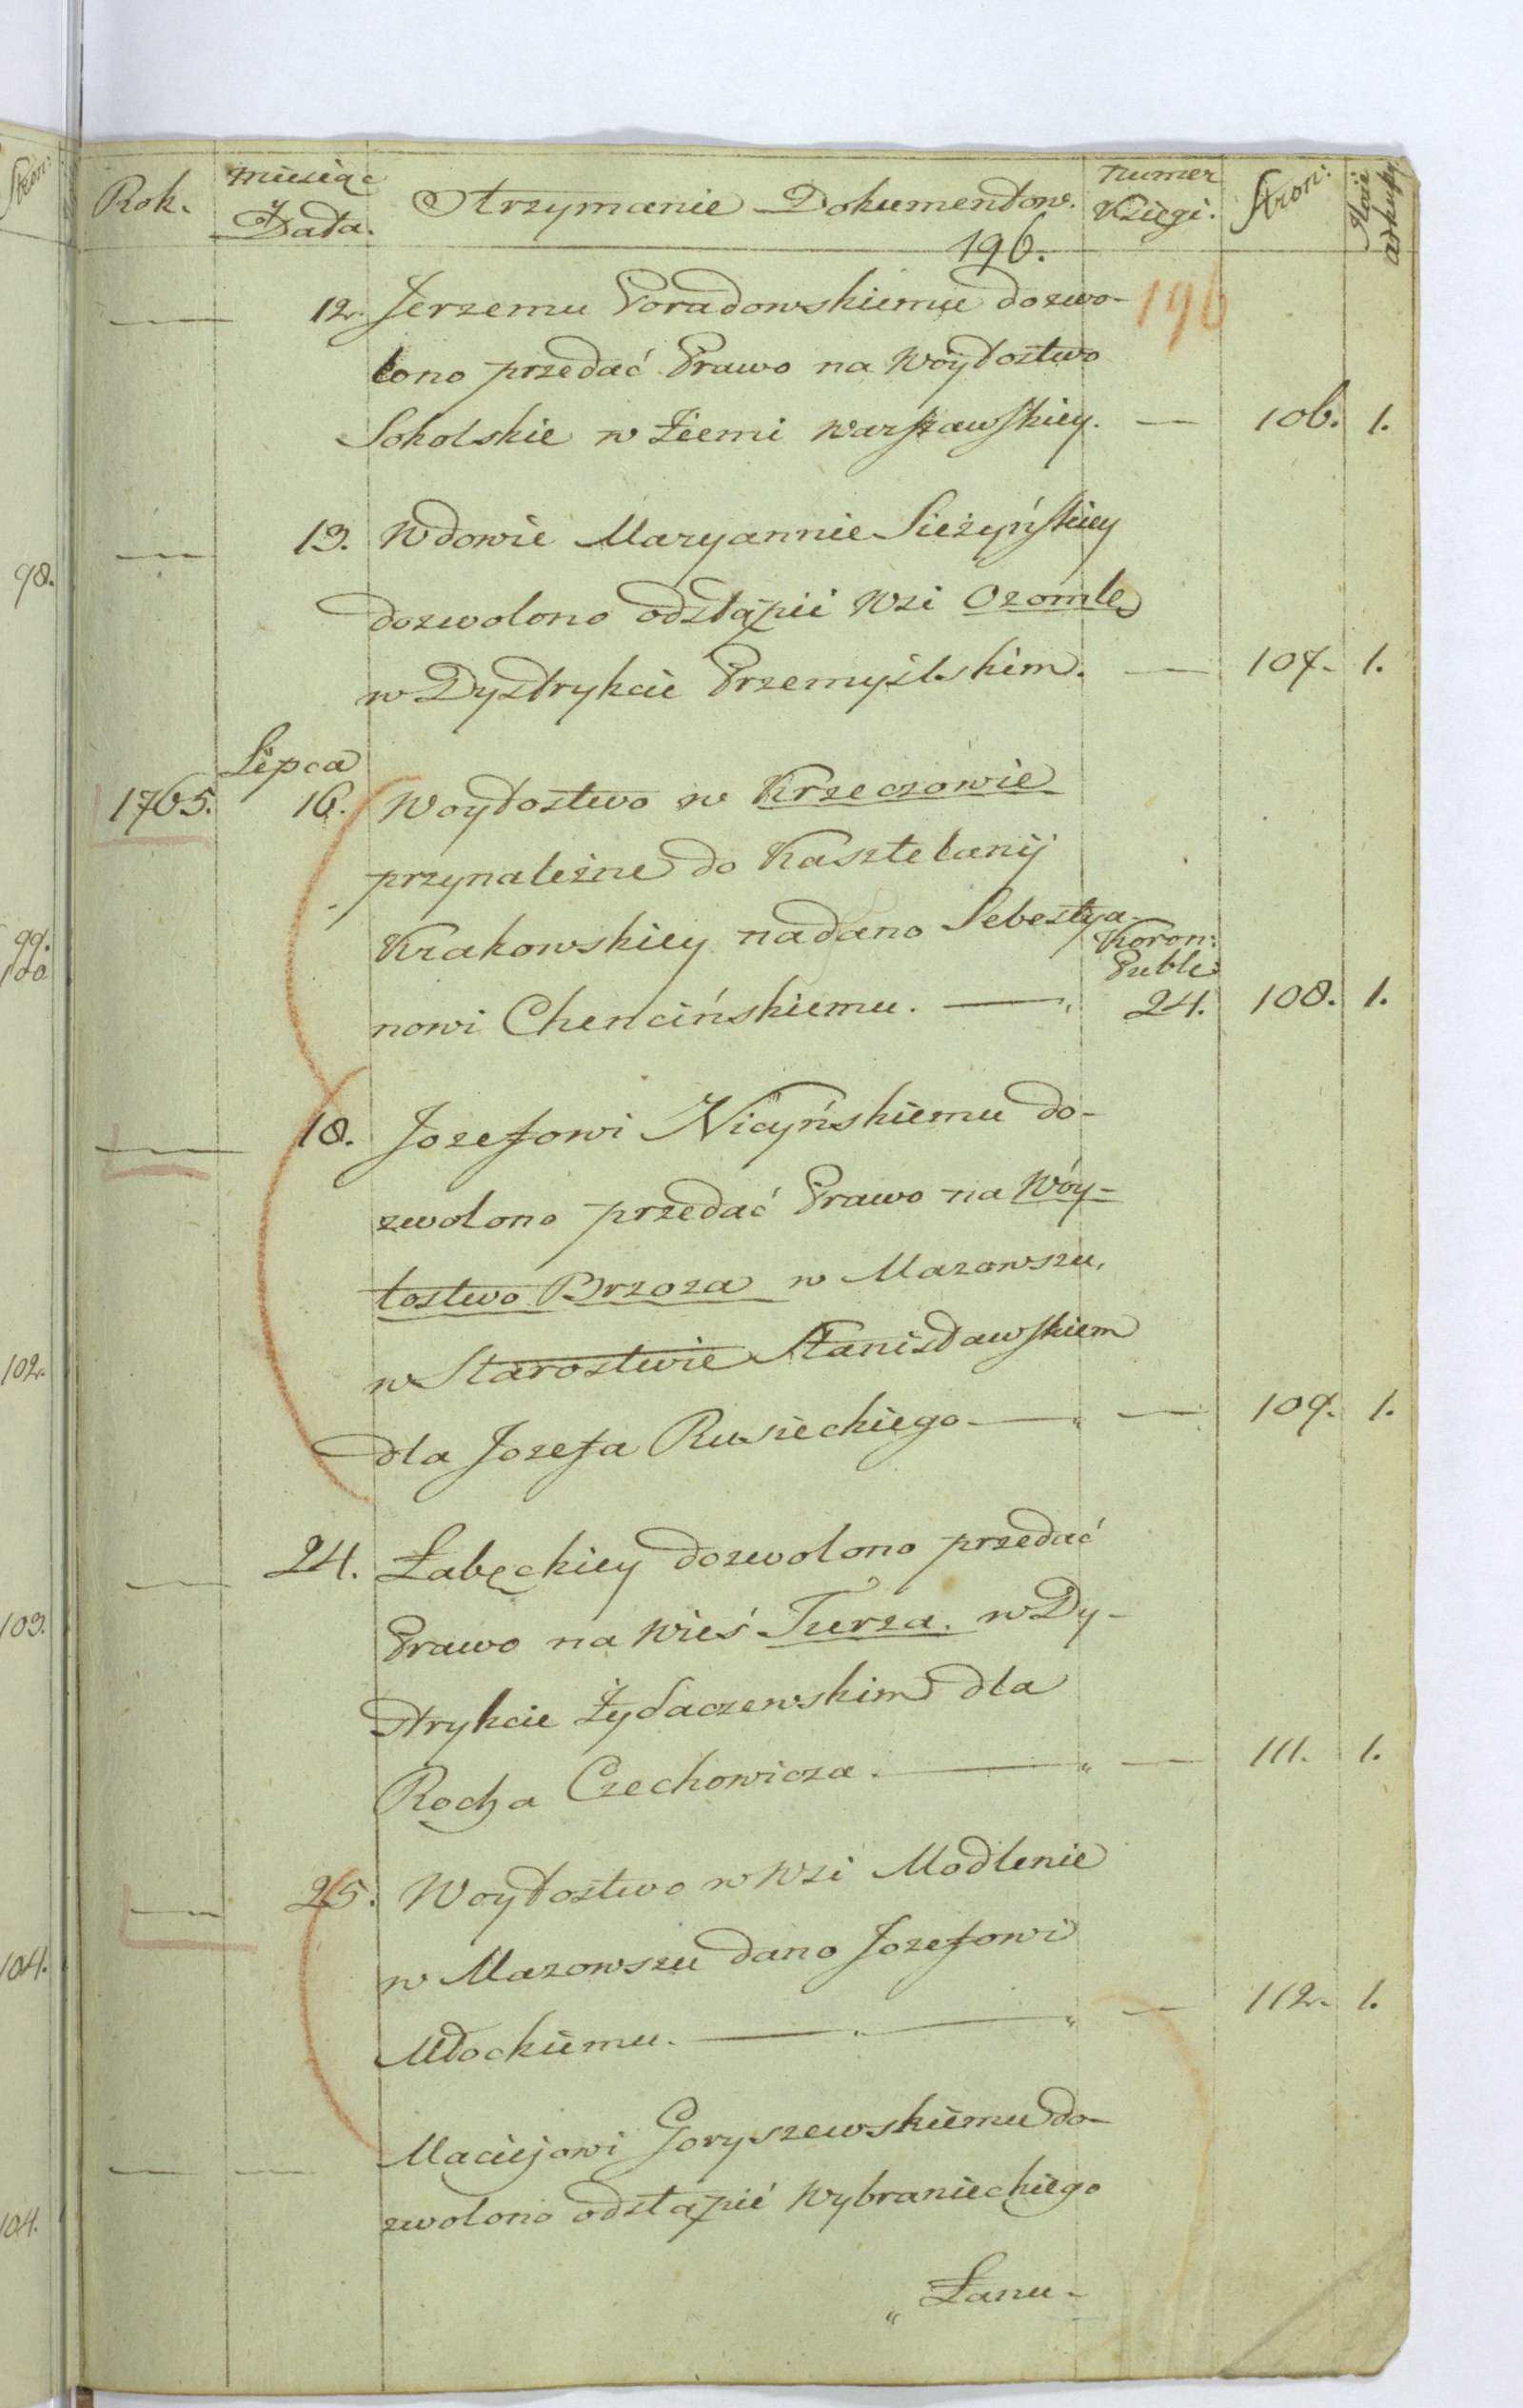 Rok. miesiąc Data. Strzymanie Dokumentow. numer Księgi. Stron: Ilość
196.
196
12. Jerzemu Poradowskiemu dozwo-
lono przedać Prawo na Woytostwo
Sokolskie w Ziemi Warszawskiey. — 106. 1.
13. Wdowie Maryannie Sieżyńskiey
dozwolono odstąpić Wsi Ozomle
w Dystrykcie Przemyślskim. — 107. 1.
Lipca
1765. 16. Woytostwo w Krzeczowie
przynależne do Kasztelanij
Krakowskiey nadano Sebestya-
Koron:
Publ:
nowi Chencińskiemu. — 24. 108. 1.
18. Jozefowi Nicyńskiemu do-
zwolono przedać Prawo na Wóy-
tostwo Brzoza w Mazowszu,
w Starostwie Stanisławskiem
dla Jozefa Rusieckiego — 109. 1.
24. Łabęckiey dozwolono przedać
Prawo na Wieś Turza. w Dy-
strykcie Żydaczewskim dla
Rocha Czechowicza. — 111. 1.
25. Woytostwo w Wsi Modlenie
w Mazowszu dano Jozefowi
Młockiemu. — 112. 1.
Maciejowi Goryszewskiemu do-
zwolono odstąpić Wybranieckiego
„ Łanu-
Stron:
98.
99.
100
102.
103.
104.
104.